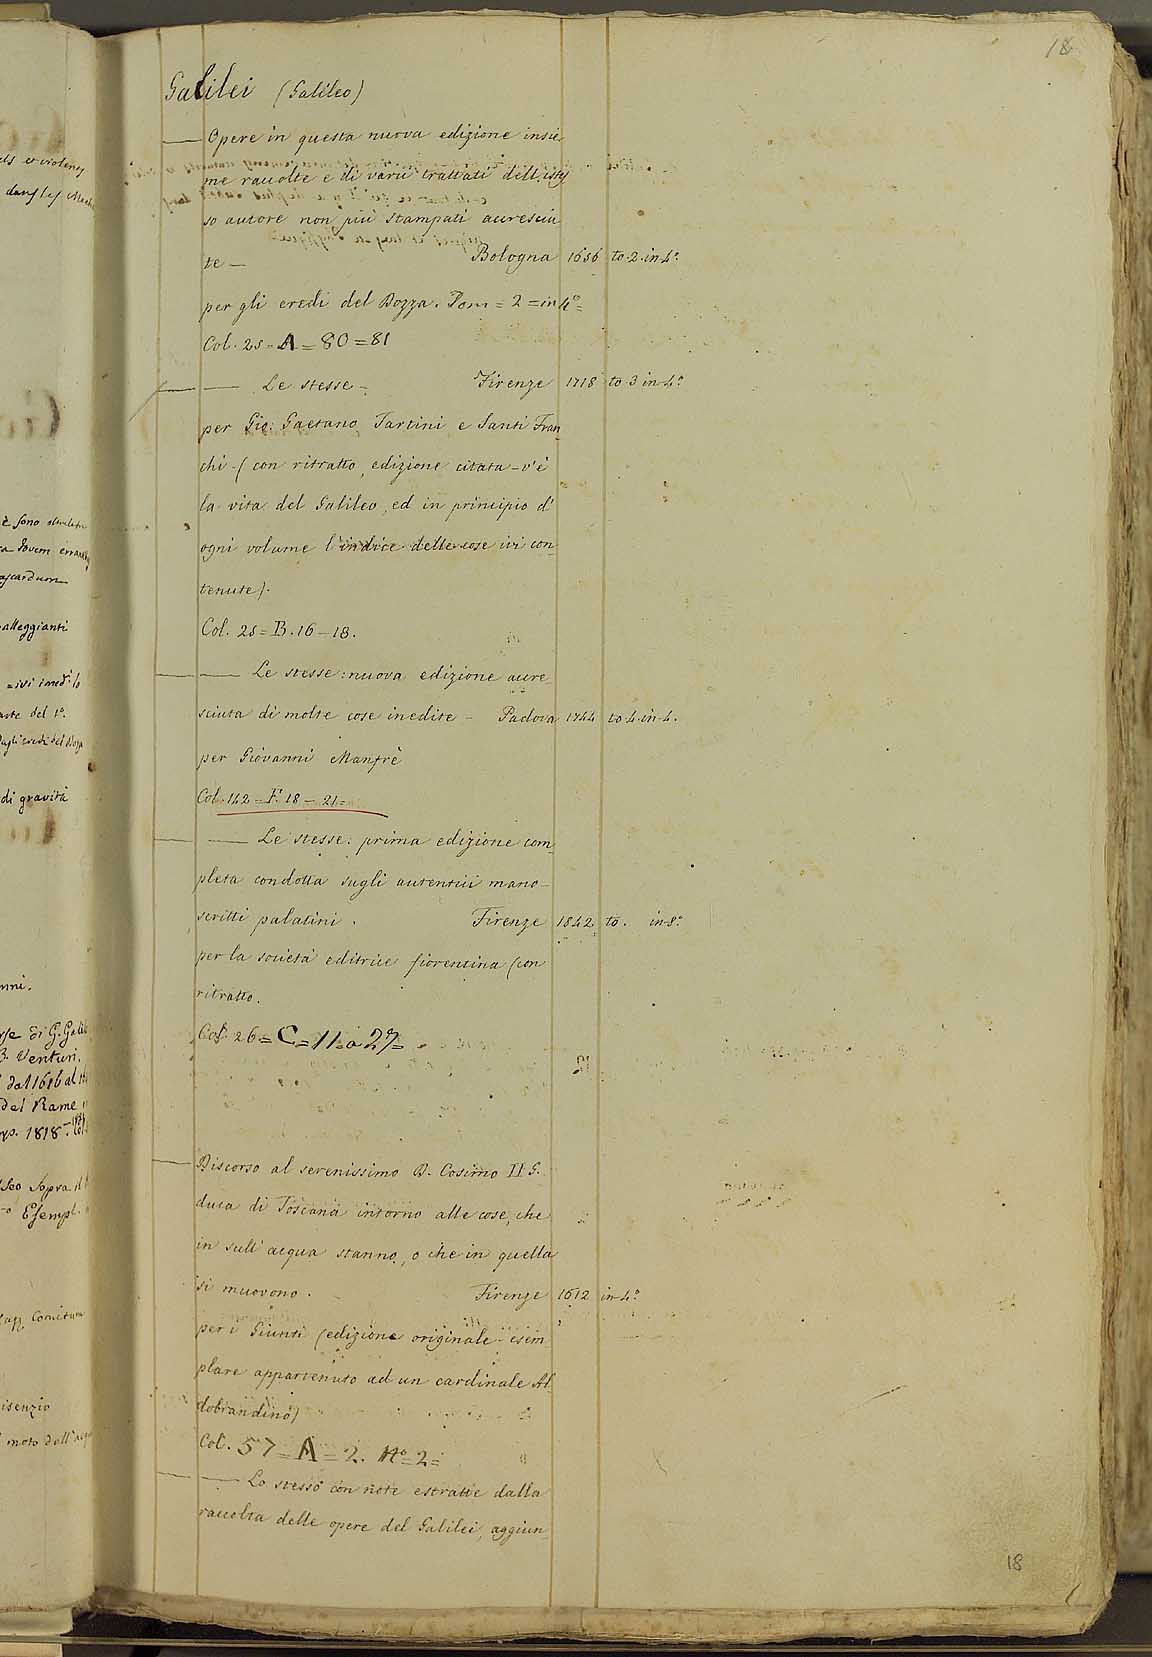 18
Galilei (Galileo)
— Opere in questa nuova edizione insie
me raccolte e di varii trattati dell'istes
so autore non più stampati accresciu
te — Bologna 1656 to. 2. in 4.°
per gli eredi del Dozza. Tom = 2 = in 4° =
Col. 25 = A = 80 = 81
— — Le stesse — Firenze 1718 to 3 in 4.°
per Gio: Gaetano Tartini e Santi Fran
chi - (con ritratto, edizione citata - v'è
la vita del Galileo, ed in principio d'
ogni volume l'indice delle cose ivi con
tenute).
Col. 25 = B. 16 - 18.
— — Le stesse: nuova edizione accre
sciuta di molte cose inedite - Padova 1744 to 4. in 4.
per Giovanni Manfrè
Col. 142 = F. 18 - 21 =
— — Le stesse: prima edizione com
pleta condotta sugli autentici mano-
scritti palatini. Firenze 1842 to. in 8.°
per la società editrice fiorentina (con
ritratto.
Col. 26 = C = 11 = a 27 =
— Discorso al serenissimo D. Cosimo II G.
duca di Toscana intorno alle cose, che
in sull'acqua stanno, o che in quella
si muovono. Firenze 1612 in 4.°
per i Giunti (edizione originale - esem
plare appartenuto ad un cardinale Al
dobrandino)
Col. 57 = A = 2. N° = 2 =
— — Lo stesso con note estratte dalla
raccolta delle opere del Galilei, aggiun
18
è sono
Jovem
alleggianti
arte del 1°.
di gravità
nni.
di G. Galil
Venturi.
dal 1616 al
del Rame
1818
sopra il
Esempl.